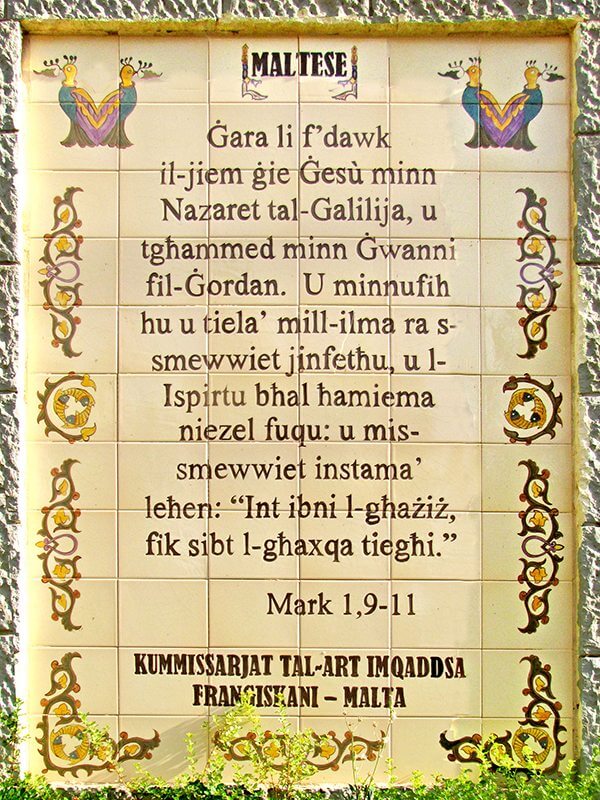 MALTESE
Ġara li f’dawk
il-jiem ġie Ġesù minn
Nazaret tal-Galilija, u
tgħammed minn Ġwanni
fil-Ġordan. U minnufih
hu u tiela’ mill-ilma ra s-
smewwiet jinfetħu, u l-
Ispirtu bħal ħamiema
niezel fuqu: u mis-
smewwiet instama’
leħen: “Int ibni l-għażiż,
fik sibt l-għaxqa tiegħi.”
Mark 1,9-11
KUMMISSARJAT TAL-ART IMQADDSA
FRANGISKANI – MALTA